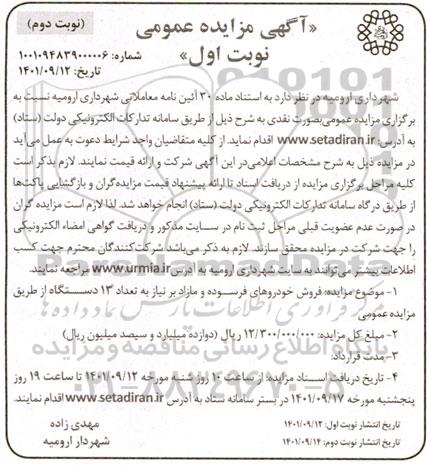 (نوبت دوم)
«آگهی مزایده عمومی
نوبت اول»
شماره: ۱۰۰۱۰۹۴۸۳۹۰۰۰۰۰۶
تاریخ: ۱۴۰۱/۰۹/۱۲
شهرداری ارومیه در نظر دارد به استناد ماده ۳۰ آئین نامه معاملاتی شهرداری ارومیه نسبت به
برگزاری مزایده عمومی‌بصورت نقدی به شرح ذیل از طریق سامانه تدارکات الکترونیکی دولت (ستاد)
به آدرس: www.setadiran.ir اقدام نماید. از کلیه متقاضیان واجد شرایط دعوت به عمل می‌آید
در مزایده ذیل به شرح مشخصات اعلامی‌در این آگهی شرکت و ارائه قیمت نمایند. لازم بذکر است
کلیه مراحل برگزاری مزایده از دریافت اسناد تا ارائه پیشنهاد قیمت مزایده‌گران و بازگشایی پاکت‌ها
از طریق درگاه سامانه تدارکات الکترونیکی دولت (ستاد) انجام خواهد شد. لذا لازم است مزایده گران
در صورت عدم عضویت قبلی مراحل ثبت نام در سایت مذکور و دریافت گواهی امضاء الکترونیکی
را جهت شرکت در مزایده محقق سازند. لازم به ذکر می‌باشد شرکت‌کنندگان محترم جهت کسب
اطلاعات بیشتر می‌توانند به سایت شهرداری ارومیه به آدرس www.urmia.ir مراجعه نمایند.
۱- موضوع مزایده: فروش خودروهای فرسوده و مازاد بر نیاز به تعداد ۱۳ دستگاه از طریق
مزایده عمومی
۲- مبلغ کل مزایده: ۱۲/۳۰۰/۰۰۰/۰۰۰ ریال (دوازده میلیارد و سیصد میلیون ریال)
۳- مدت قرارداد:
۴- تاریخ دریافت اسناد مزایده: از ساعت ۱۰ روز شنبه مورخه ۱۴۰۱/۰۹/۱۲ تا ساعت ۱۹ روز
پنجشنبه مورخه ۱۴۰۱/۰۹/۱۷ در بستر سامانه ستاد به آدرس www.setadiran.ir اقدام نمایند.
تاریخ انتشار نوبت اول: ۱۴۰۱/۰۹/۱۲
تاریخ انتشار نوبت دوم: ۱۴۰۱/۰۹/۱۴
مهدی زاده
شهردار ارومیه